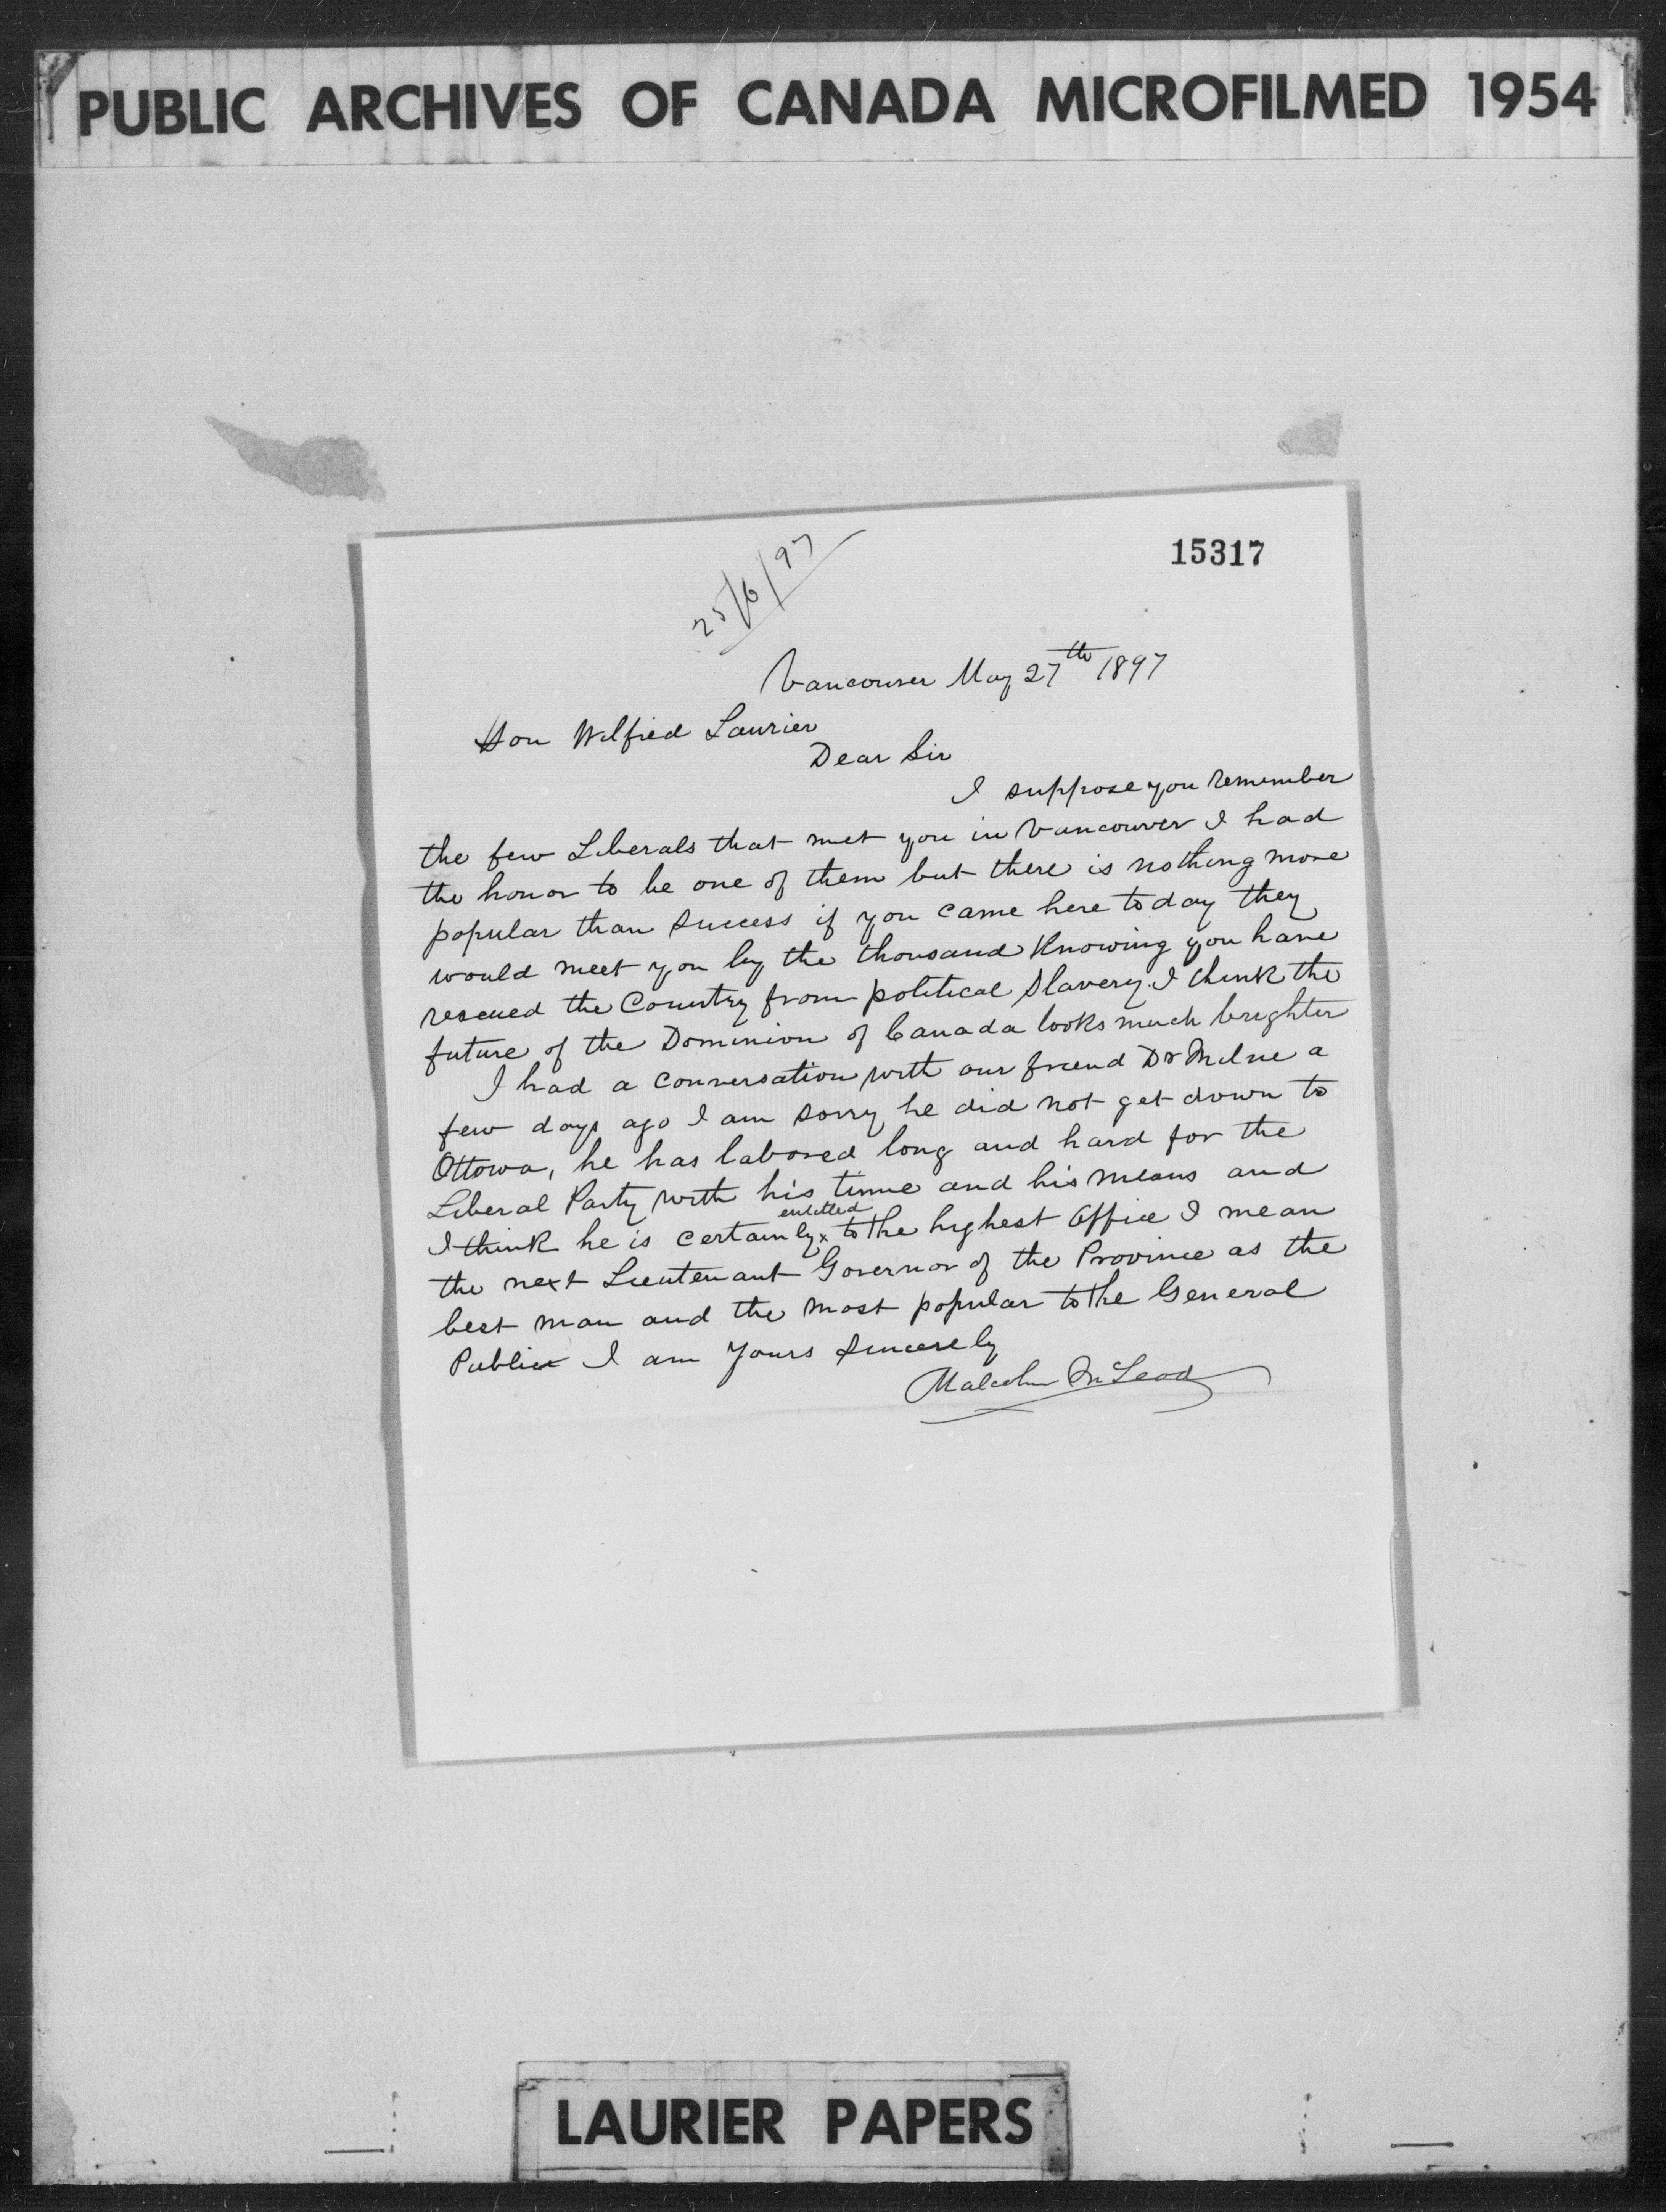 PUBLIC ARCHIVES OF CANADA MICROFILMED 1954
15317
25/6/97
Vancouver May 27th 1897
Hon Wilfied Laurier
Dear Sir
I suppose you remember
the few Liberals that met you in Vancouver I had
the honor to be one of them but there is nothing more
popular than success if you came here today they
would meet you by the thousand Knowing you have
rescued the Country from political Slavery. I think the
future of the Dominion of Canada looks much brighter
I had a conversation with our friend Dr Milne a
few days ago I am sorry he did not get down to
Ottowa, he has labored long and hard for the
Liberal Party with his time and his means and
I think he is certainly x entitled to the highest Office I mean
the next Lieutenant Governor of the Province as the
best man and the most popular to the General
Public I am Yours Sincerely
Malcolm McLeod
LAURIER PAPERS